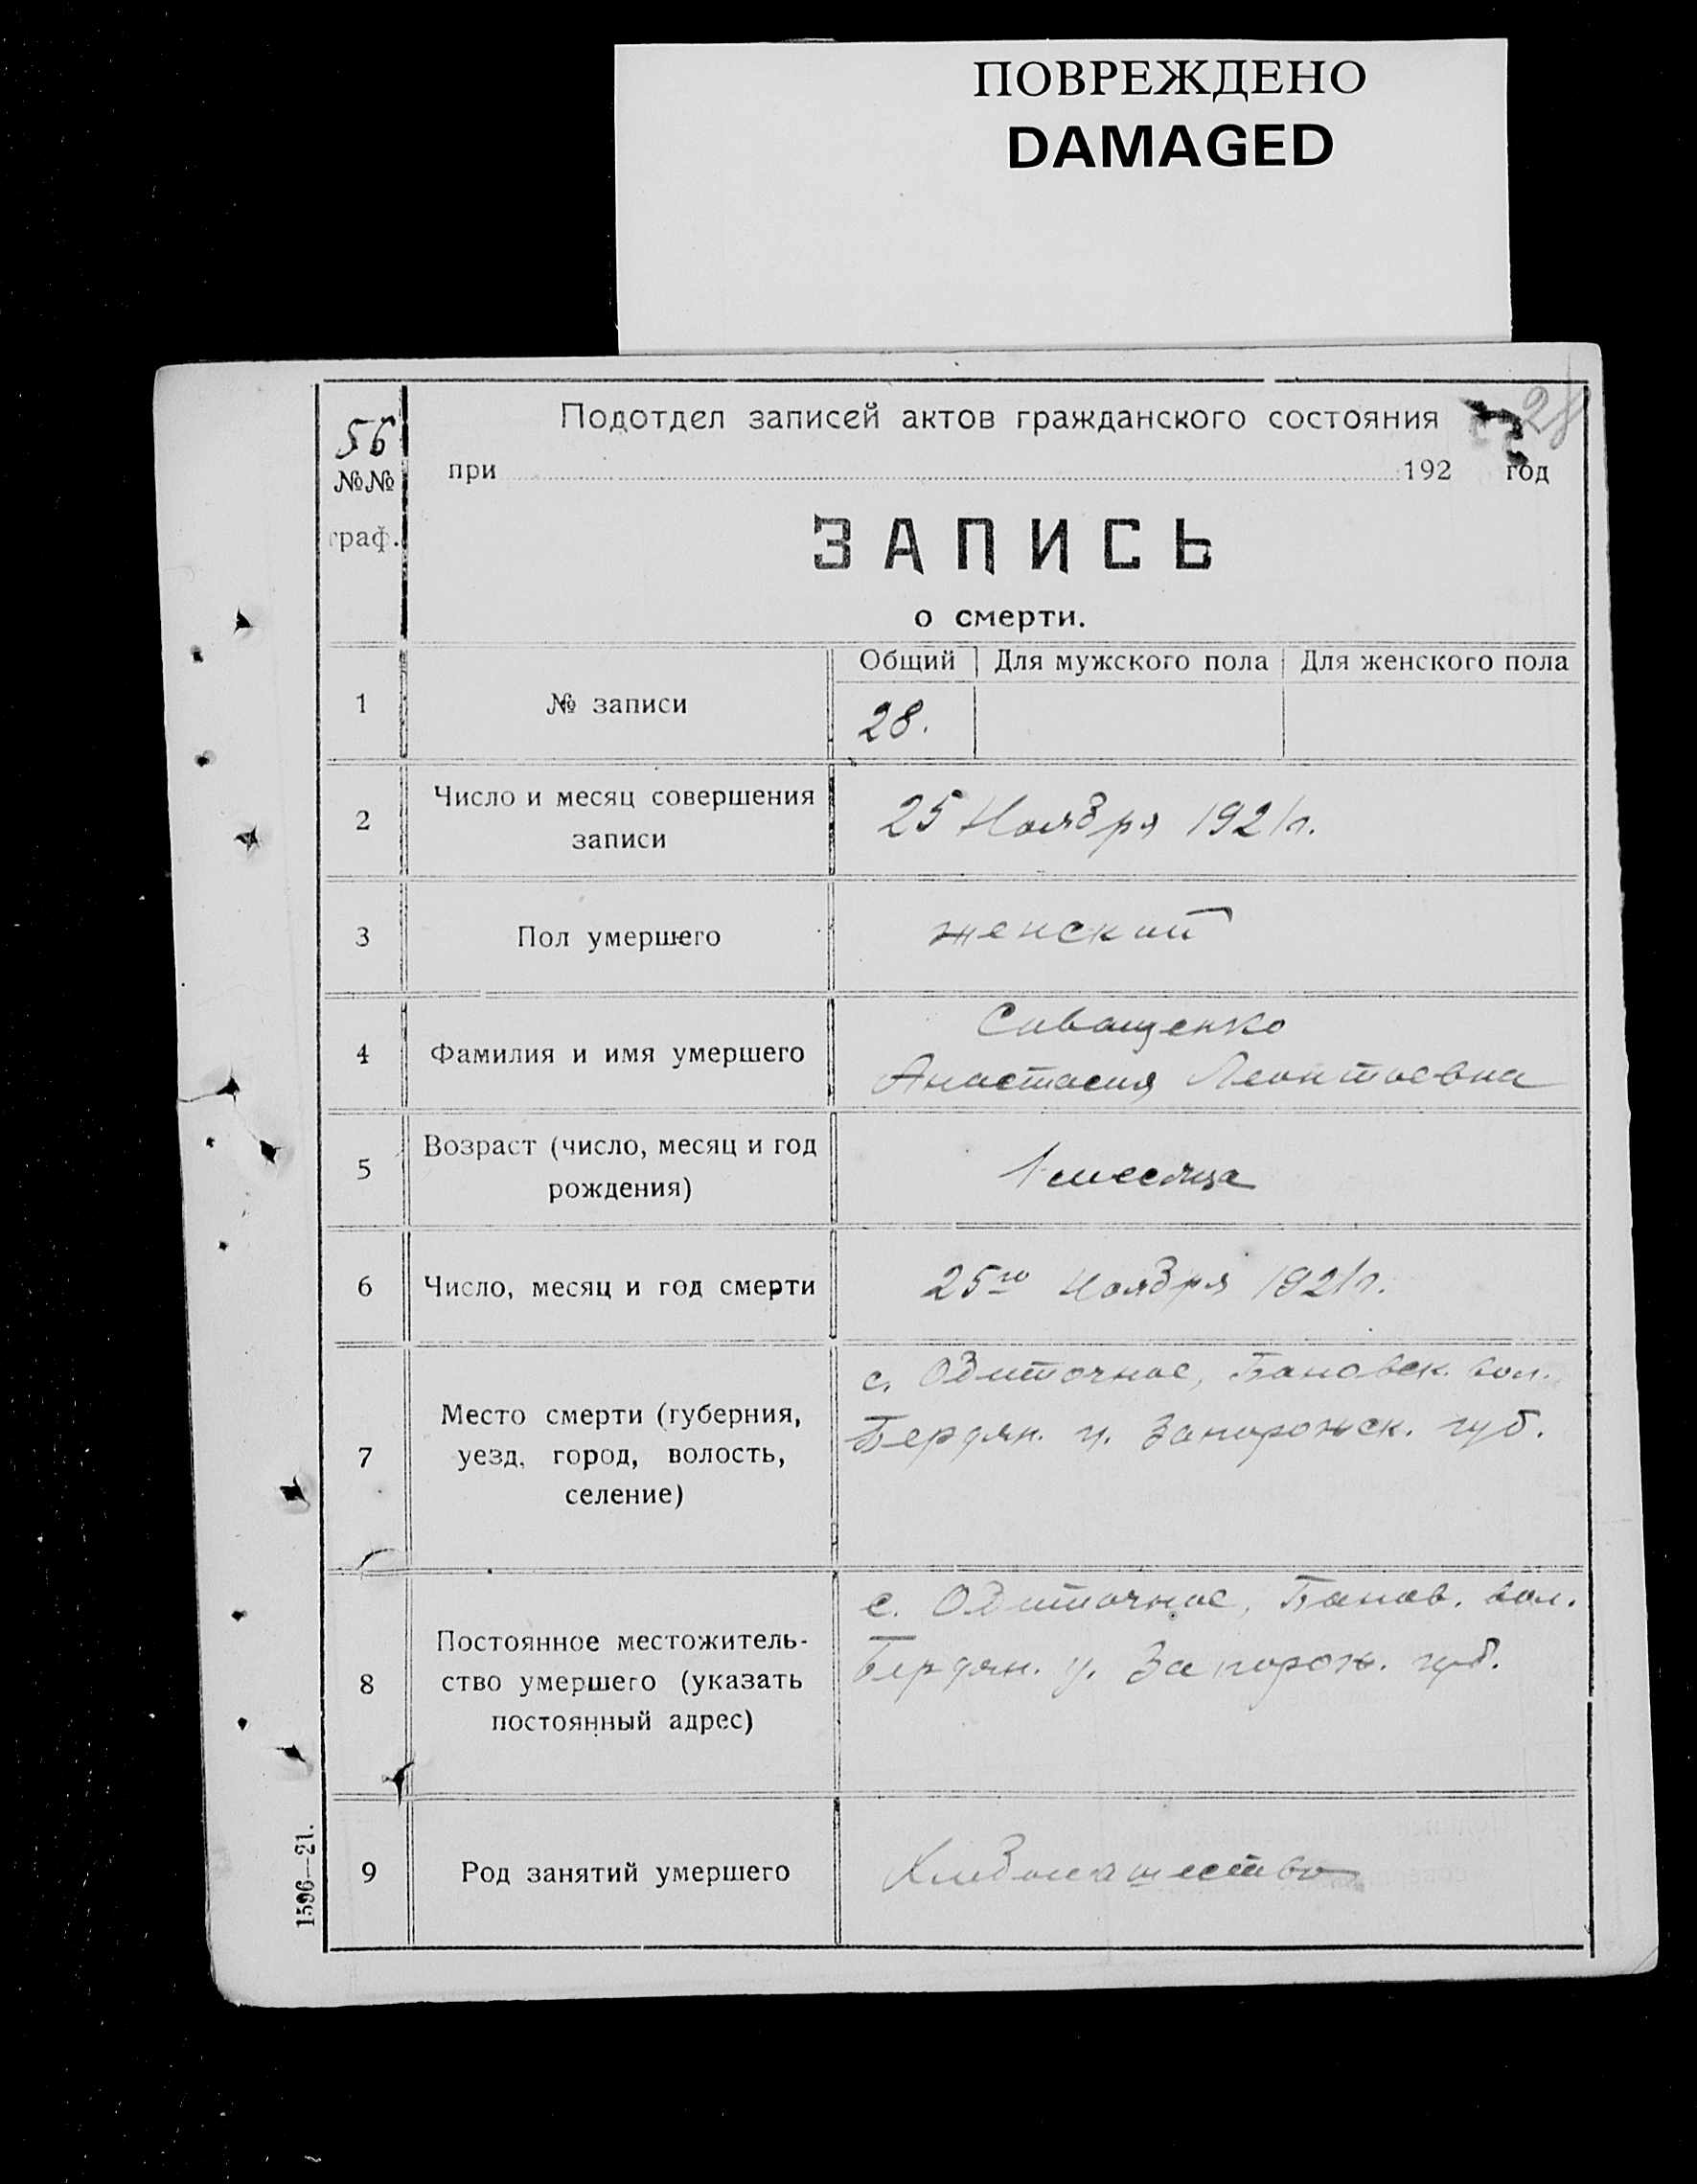 ПОВРЕЖДЕНО
DAMAGED
28
56
№№
граф.
Подотдел записей актов гражданского состояния
при 192 год
ЗАПИСЬ
о смерти.
Общий Для мужского пола Для женского пола
1 № записи 28.
2 Число и месяц совершения
записи
25 Ноября 1921 г.
3 Пол умершего женский
4 Фамилия и имя умершего
Сиващенко
Анастасия Леонтьевна
5 Возраст (число, месяц и год
рождения)
1 месяца
6 Число, месяц и год смерти 25го Ноября 1921 г.
7 Место смерти (губерния,
уезд, город, волость,
селение)
с. Обиточное, Бановск. вол.
Бердян. у. Запорожск. губ.
8 Постоянное местожитель-
ство умершего (указать
постоянный адрес)
с. Обиточное, Банов. вол.
Бердян. у. Запорож. губ.
9 Род занятий умершего
1596—21.